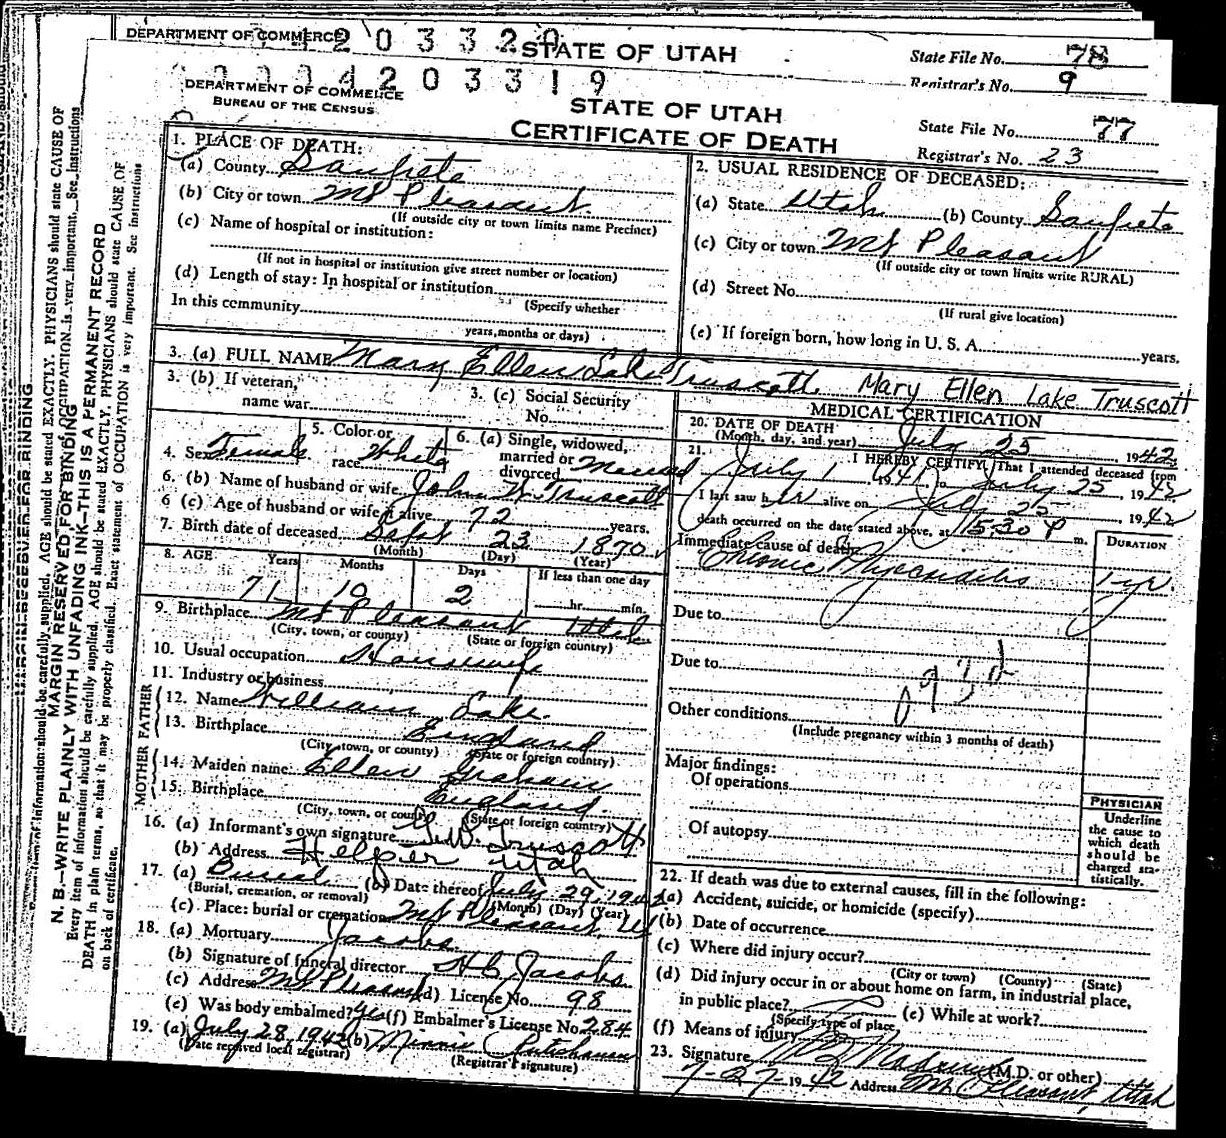 DEPARTMENT OF COMMERCE
STATE OF UTAH
State File No. 78
Registrar's No. 9
203319
DEPARTMENT OF COMMERCE
BUREAU OF THE CENSUS
STATE OF UTAH
CERTIFICATE OF DEATH
State File No. 77
Registrar's No. 23
MARGIN RESERVED FOR BINDING
N. B.—WRITE PLAINLY WITH UNFADING INK—THIS IS A PERMANENT RECORD
Every item of information should be carefully supplied. AGE should be stated EXACTLY. PHYSICIANS should state CAUSE OF
DEATH in plain terms, so that it may be properly classified. Exact statement of OCCUPATION is very important. See instructions
on back of certificate.
1. PLACE OF DEATH:
(a) County Sanpete
(b) City or town Mt Pleasant
(If outside city or town limits name Precinct)
(c) Name of hospital or institution:
(If not in hospital or institution give street number or location)
(d) Length of stay: In hospital or institution
(Specify whether
In this community
years, months or days)
2. USUAL RESIDENCE OF DECEASED:
(a) State Utah (b) County Sanpete
(c) City or town Mt Pleasant
(If outside city or town limits write RURAL)
(d) Street No.
(If rural give location)
(e) If foreign born, how long in U. S. A. years.
3. (a) FULL NAME Mary Ellen Lake Truscott. Mary Ellen Lake Truscott
3. (b) If veteran, name war
3. (c) Social Security No.
4. Sex Female
5. Color or race White
6. (a) Single, widowed, married or divorced Married
6. (b) Name of husband or wife John W. Truscott
6 (c) Age of husband or wife if alive 72 years.
7. Birth date of deceased Sept 23 1870
(Month) (Day) (Year)
8. AGE Years Months Days If less than one day
71 10 2 hr. min.
9. Birthplace Mt Pleasant Utah
(City, town, or county) (State or foreign country)
10. Usual occupation Housewife
11. Industry or business
FATHER
12. Name William Lake
13. Birthplace England
(City, town, or county) (State or foreign country)
MOTHER
14. Maiden name Ellen Graham
15. Birthplace England
(City, town, or county) (State or foreign country)
16. (a) Informant's own signature Truscott
(b) Address Helper Utah
17. (a) Burial (b) Date thereof July 29, 1942
(Burial, cremation, or removal) (Month) (Day) (Year)
(c) Place: burial or cremation Mt Pleasant, Ut
18. (a) Mortuary Jacobs
(b) Signature of funeral director H C Jacobs
(c) Address Mt Pleasant (d) License No. 98
(e) Was body embalmed? Yes (f) Embalmer's License No. 284
19. (a) July 28, 1942 (b) Minnie
(Date received local registrar) (Registrar's signature)
MEDICAL CERTIFICATION
20. DATE OF DEATH
(Month, day, and year) July 25 1942
21. I HEREBY CERTIFY, That I attended deceased from
July 1 1941, to July 25 1942
I last saw her alive on July 25 1942
death occurred on the date stated above, at 1530 P m.
Immediate cause of death DURATION
Chronic Myocarditis 1 yr.
Due to
Due to
093d
Other conditions
(Include pregnancy within 3 months of death)
Major findings:
Of operations
Of autopsy
PHYSICIAN
Underline
the cause to
which death
should be
charged sta-
tistically.
22. If death was due to external causes, fill in the following:
(a) Accident, suicide, or homicide (specify)
(b) Date of occurrence
(c) Where did injury occur?
(City or town) (County) (State)
(d) Did injury occur in or about home on farm, in industrial place,
in public place? (e) While at work?
(Specify type of place
(f) Means of injury
23. Signature (M.D. or other)
7-27-1942 Address Mt Pleasant, Utah